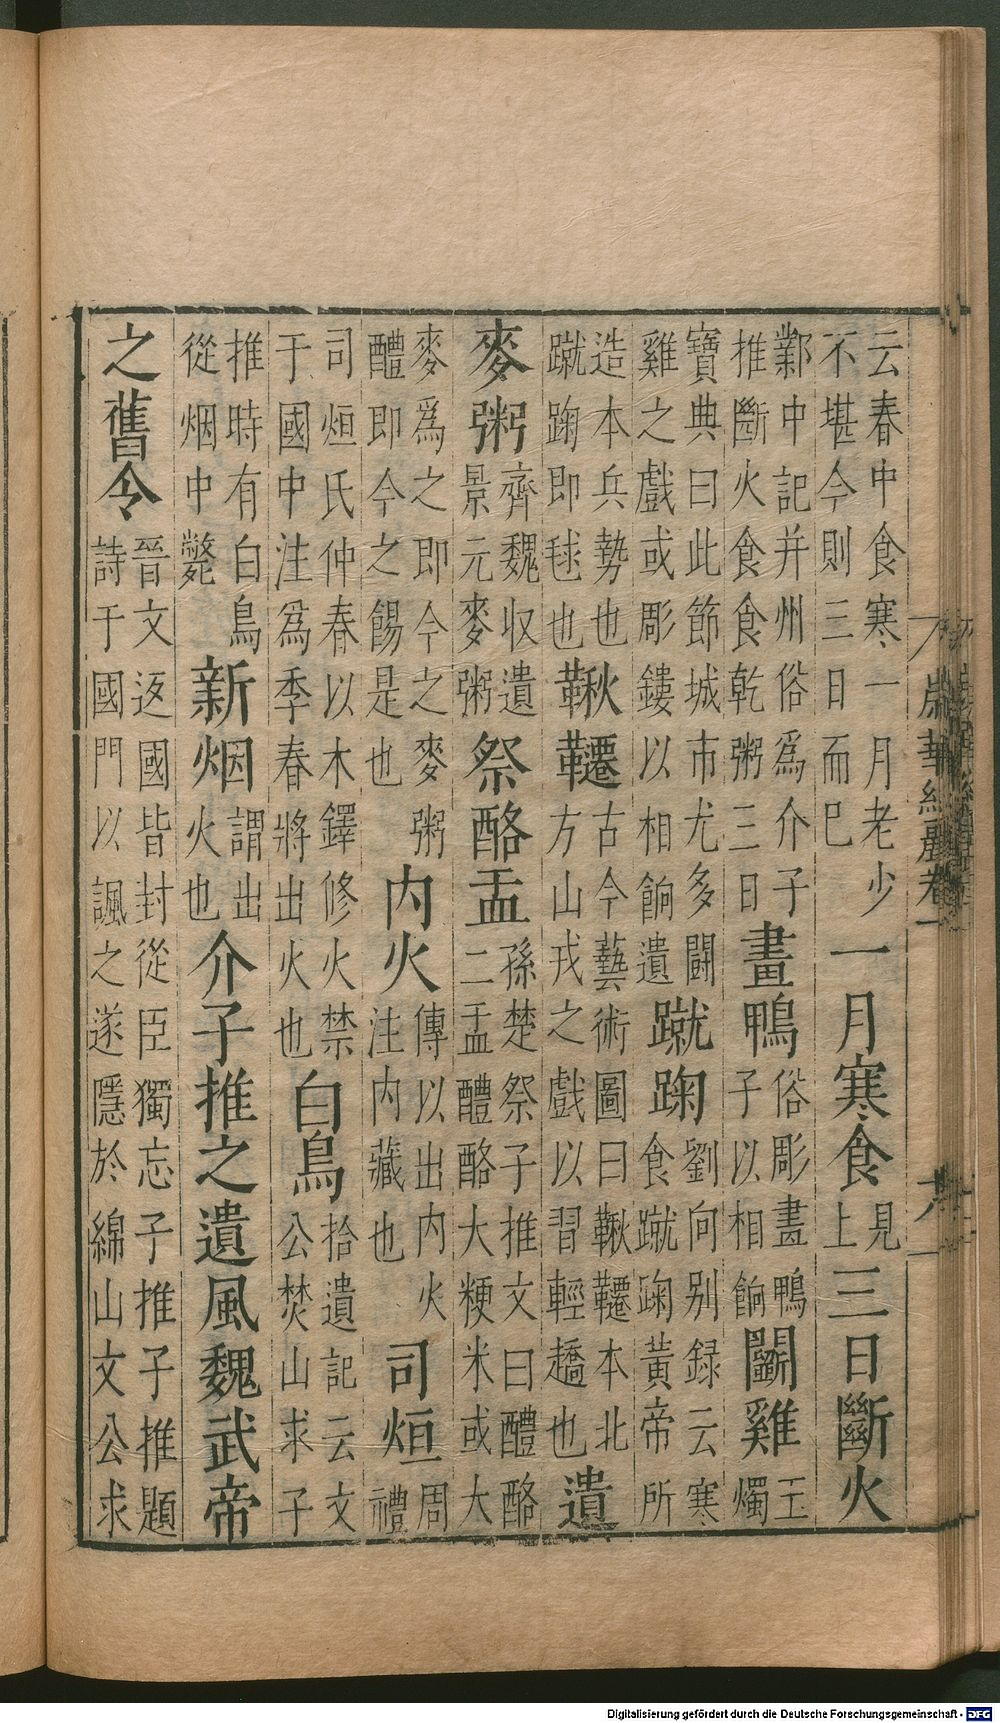 云春中食寒一月老少不堪今則三日而巳一月寒食見上三日斷火
鄴中記并州俗爲介子推斷火食食乾粥三日畫鴨俗彫畫鴨子以相餉鬭雞玉燭
寶典曰此節城市尤多鬭雞之戲或彫鏤以相餉遺蹴踘劉向别録云寒食蹴踘黃帝所
造本兵勢也蹴踘即毬也鞦韆古今藝術圖曰鞦韆本北方山戎之戲以習輕趫也遺
麥粥齊魏収遺景元麥粥祭酪盂孫楚祭子推文曰醴酪二盂醴酪大粳米或大
麥爲之即今之麥粥醴即今之餳是也内火傳以出内火注内藏也司烜周禮
司烜氏仲春以木鐸修火禁于國中注爲季春將出火也白鳥拾遺記云文公焚山求子
推時有白鳥從烟中斃新烟謂出火也介子推之遺風魏武帝
之舊令晉文返國皆封從臣獨忘子推子推題詩于國門以諷之遂隱於綿山文公求
歲華紀麗卷一
Digitalisierung gefördert durch die Deutsche Forschungsgemeinschaft - DFG